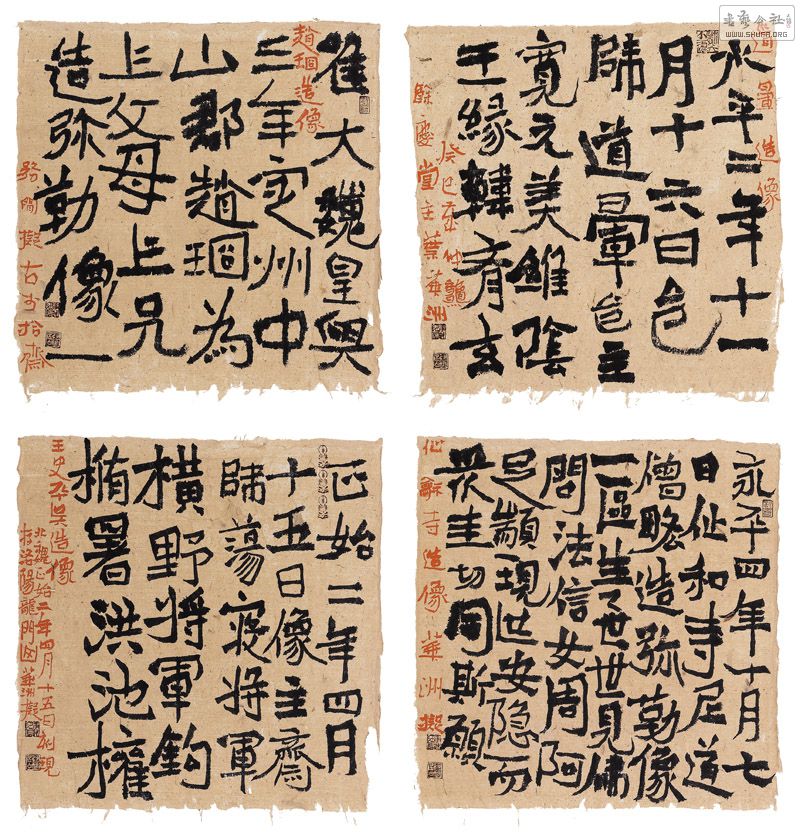 惟大魏皇興
三年定州中
山郡趙珚為
上父母上兄
造弥勒像一
趙珚造像
擬古於拾齋
书艺公社
WWW.SHUFA.ORG
永平二年十一
月十六日邑
師道暈邑主
寬元美維陰
王緣韓齊玄
道暈造像
癸巳年仲
餘慶堂主葉華洲
正始二年四月
十五日像主齋
師蕩寇將軍
橫野將軍鉤
楯署洪池權
王史平吳造像
北魏正始二年四月十五日刻現
存洛陽龍門 華洲擬
永平四年十月七
日仙和寺尼道
僧略造弥勒像
一區生々世世見佛
問法信女周阿
足願現世安隐而
眾生切同斯願
仙和寺造像 華洲擬